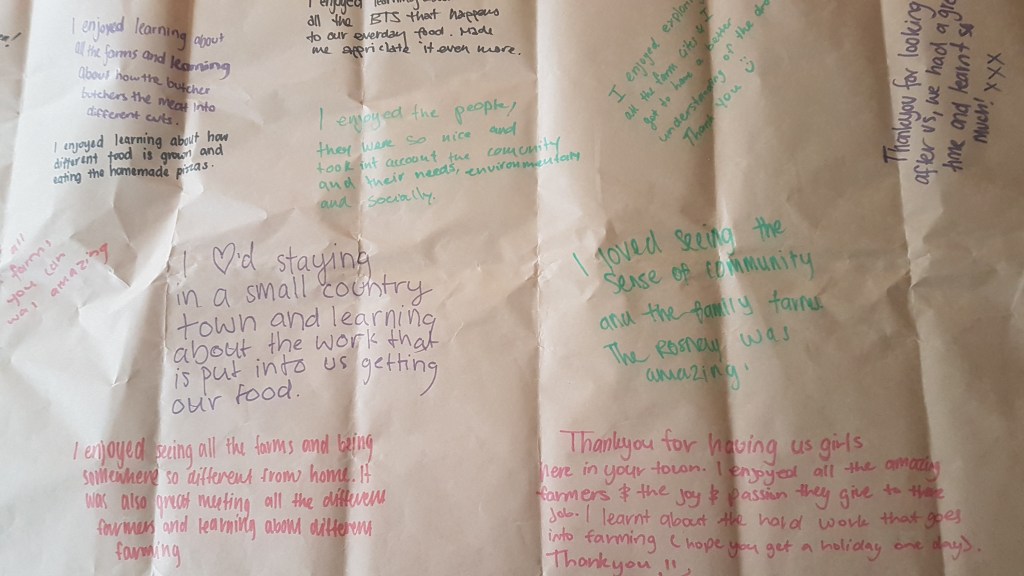 I enjoyed learning about
all the farms and learning
about how the butcher
butchers the meat into
different cuts.
I enjoyed learning about
all the BTS that happens
to our everday food. Made
me appriciate it even more.
I enjoyed
all the farm
get to have a better
understanding of the
Thank you
Thankyou for looking
after us, we had a
time and learnt so
much! xxx
I enjoyed learning about how
different food is grown and
eating the homemade pizzas.
I enjoyed the people,
they were so nice and
took int account the comunity
and their needs, environmentaly
and socially.
all
farms
you can
was amazing
I ♡'d staying
in a small country
town and learning
about the work that
is put into us getting
our food.
I loved seeing the
sense of community
and the family farms
The was
amazing.
I enjoyed seeing all the farms and being
somewhere so different from home. It
was also great meeting all the different
farmers and learning about different
farming
Thankyou for having us girls
here in your town. I enjoyed all the amazing
farmers & the joy & passion they give to there
job. I learnt about the hard work that goes
into farming (hope you get a holiday one day).
Thankyou !!